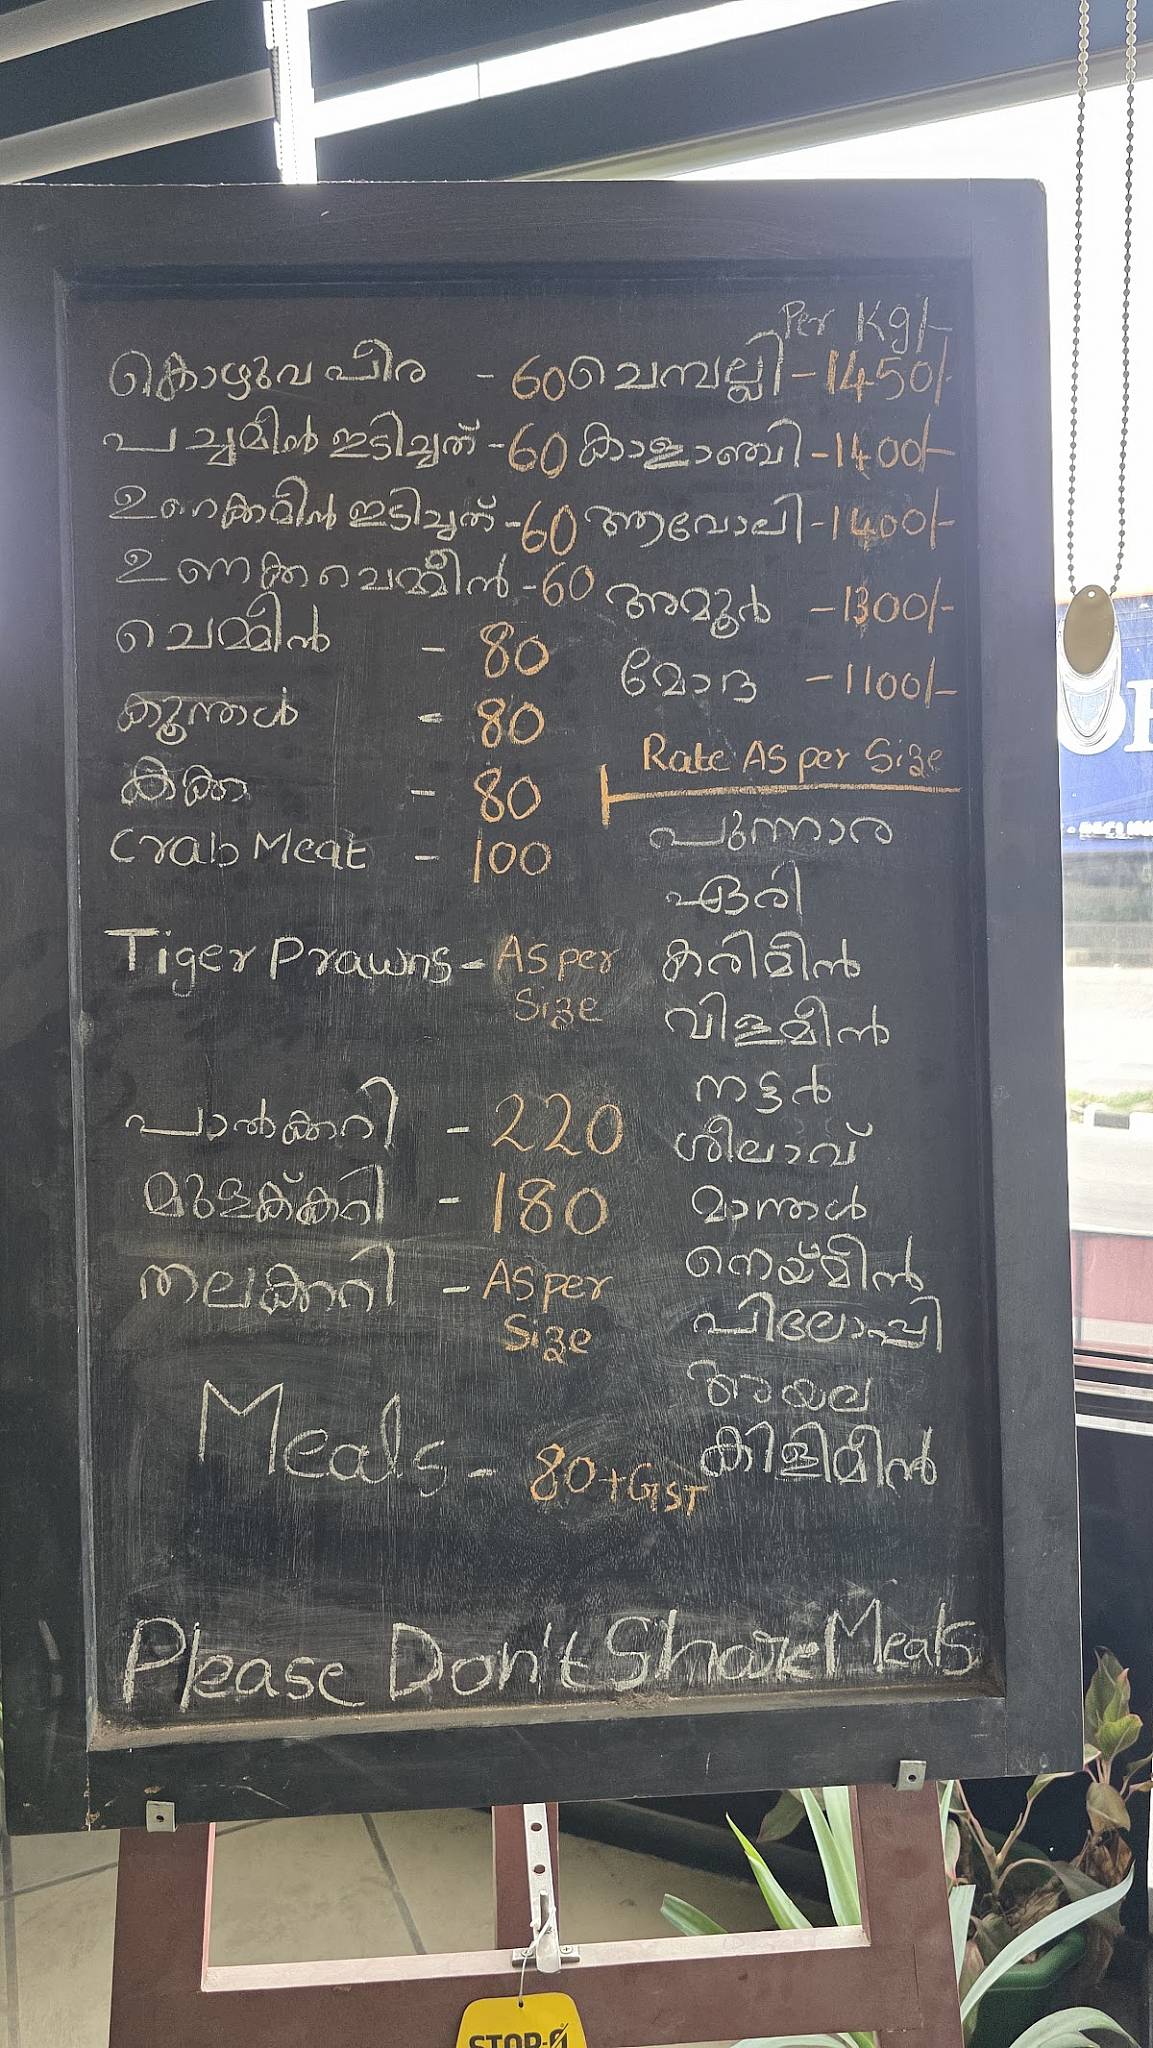 Per Kg/-
കൊഴുവപീര - 60
പച്ചമീൻ ഇടിച്ചത് - 60
ഉണക്കമീൻ ഇടിച്ചത് - 60
ഉണക്കചെമ്മീൻ - 60
ചെമ്മീൻ - 80
കൂന്തൾ - 80
കക്ക - 80
Crab Meat - 100
Tiger Prawns - As per
Size
പാൽക്കറി - 220
മുളക്ക്കറി - 180
തലക്കറി - As per
Size
Meals - 80+GST
ചെമ്പല്ലി - 1450/-
കാളാഞ്ചി - 1400/-
ആവോലി - 1400/-
അമൂർ - 1300/-
മോദ - 1100/-
Rate As per Size
പുന്നാര
ഏരി
കരിമീൻ
വിളമീൻ
നട്ടർ
ശീലാവ്
മാന്തൾ
നെയ്മീൻ
പിലോപ്പി
അയല
കിളിമീൻ
Please Don't Share Meals
STOP-